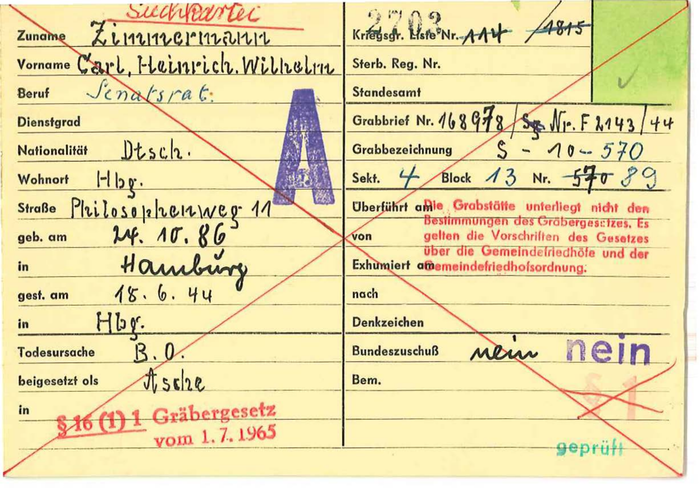 Suchkartei
Zuname Zimmermann
Vorname Carl, Heinrich. Wilhelm
Beruf Senatsrat.
Dienstgrad
Nationalität Dtsch.
Wohnort Hbg.
Straße Philosophenweg 11
geb. am 24. 10. 86
in Hamburg
gest. am 18. 6. 44
in Hbg.
Todesursache B. O.
beigesetzt als Asche
in
§ 16 (1) 1 Gräbergesetz
vom 1. 7. 1965
A
2703
Kriegsgr. Liste Nr. 114 / 1815
Sterb. Reg. Nr.
Standesamt
Grabbrief Nr. 168978 / Nr. F 2143/44
Grabbezeichnung S - 10 - 570
Sekt. 4 Block 13 Nr. 570 89
Überführt am
von
Exhumiert am
nach
Die Grabstätte unterliegt nicht den
Bestimmungen des Gräbergesetzes. Es
gelten die Vorschriften des Gesetzes
über die Gemeindefriedhöfe und der
Gemeindefriedhofsordnung.
Denkzeichen
Bundeszuschuß nein nein
Bem.
§ 1
geprüft